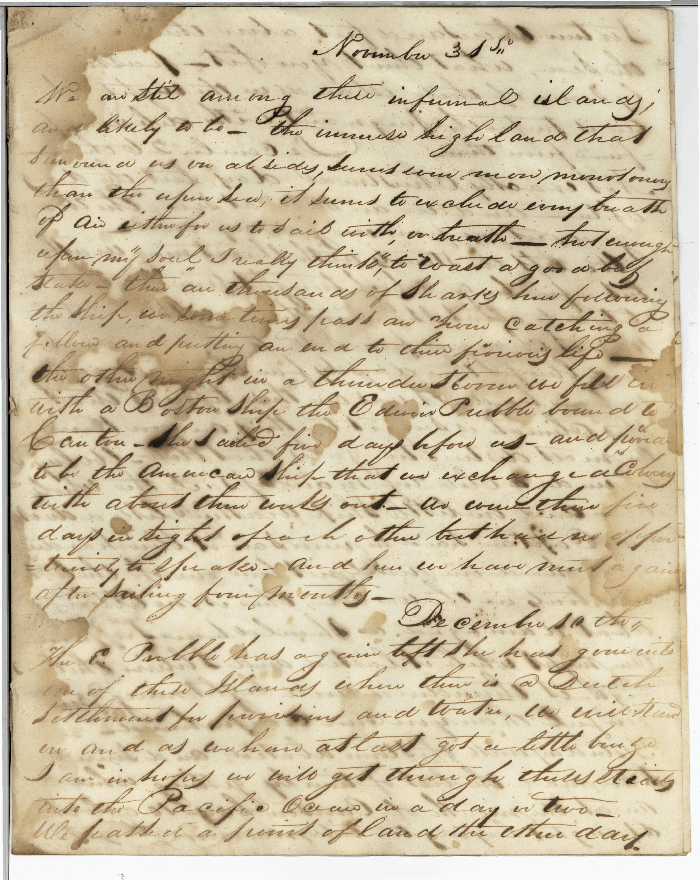 November 31st,,
We are still among these infernal islands,
and likely to be – The immense high land that
surround us on al sides, seems even more monotonous
than the open sea, it seems to exclude every breath
of Air either for us to sail with, or breath – hot enough
upon my soul I really think, to roast a good beef
stake – there are thousands of sharks here following
the ship, we some times pass an hour catching a
fellow and putting an end to their furious life —
the other night in a thunder storm we fell in
with a Boston Ship the Edwin Prebble bound to
Canton – she sailed five days before us – and proved
to be the American ship that we exchanged Colours
with about three weeks out – we were then five
days in sight of each other but had no oppor
=tunity to speake – and here we have meet again
after sailing four months –
December 10 th,,
The E. Prebble has again left she has gone into
one of these Islands where there is a Dutch
settlement for provisions and water, we will stand
on and as we have at last got a little breeze
I am in hopes we will get through these straits
into the Pacific Ocean in a day or two –
We passed a point of land the other day